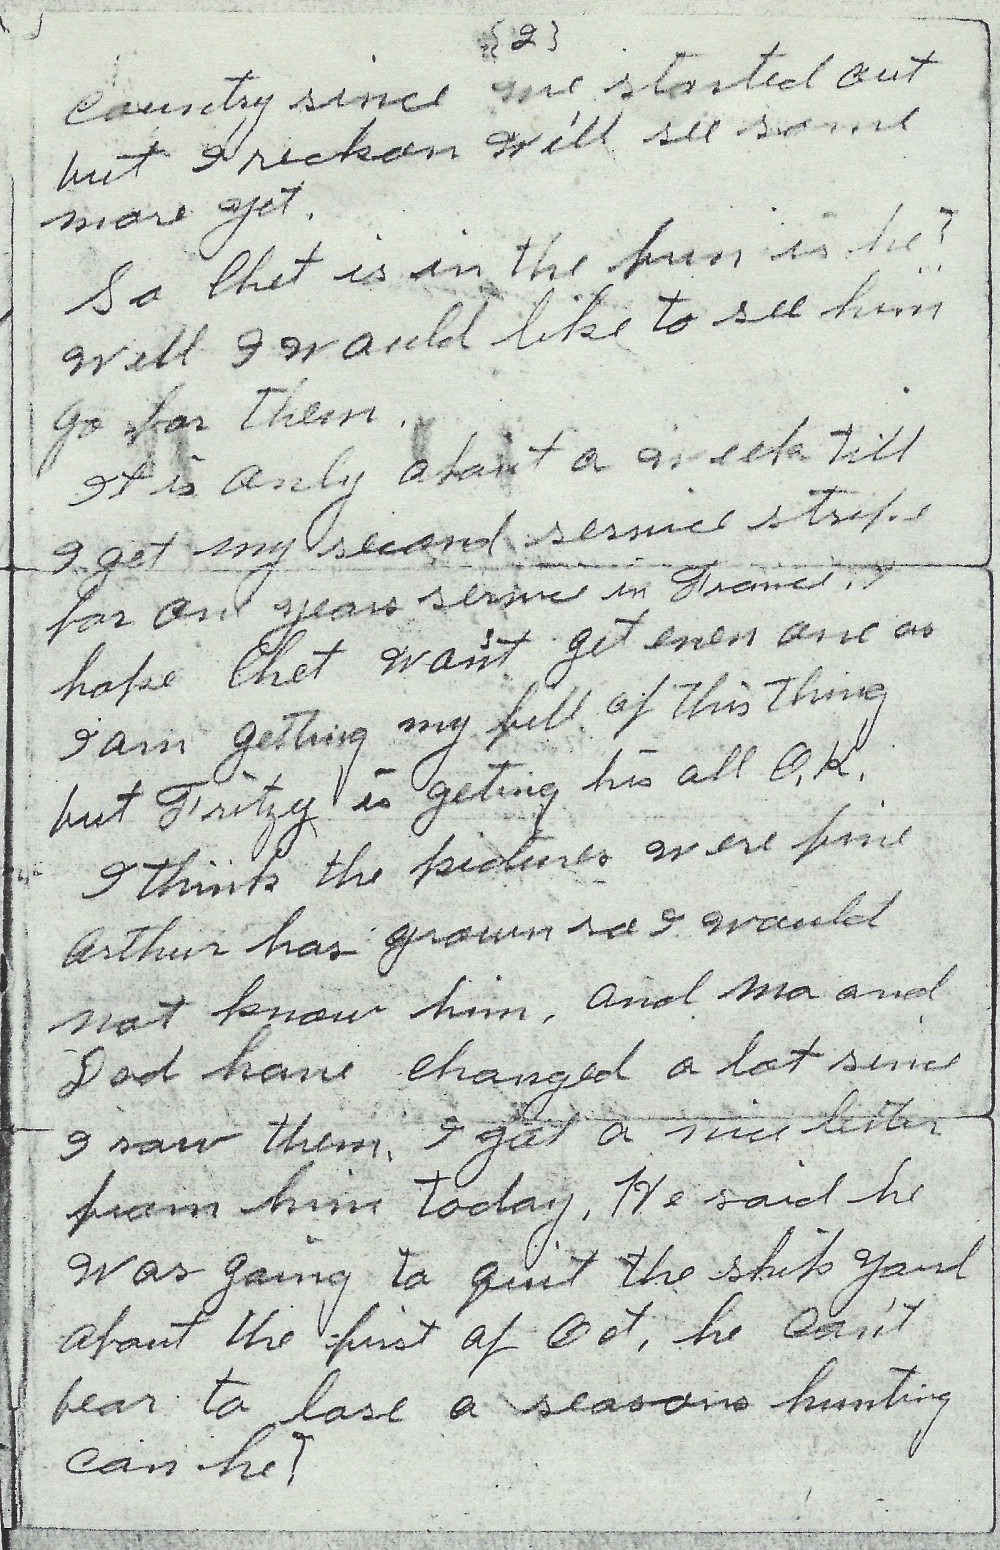 {2}
Country since we started out
but I reckon we'll see some
more yet.
So Chet is in the fun is he?
Well I would like to see him
go for them.
It is only about a week till
I get my second service stripe
for on years service in France. I
hope Chet wan't get even one as
I am getting my fill of this thing
but Fritzy is geting his all O.K.
I think the pictures were fine
Arthur has grown so I would
not know him, and Ma and
Dad have changed a lot since
I saw them. I got a nice letter
from him today. He said he
was going to quit the ship yard
about the first of Oct, he can't
bear to lose a seasons hunting
can he?